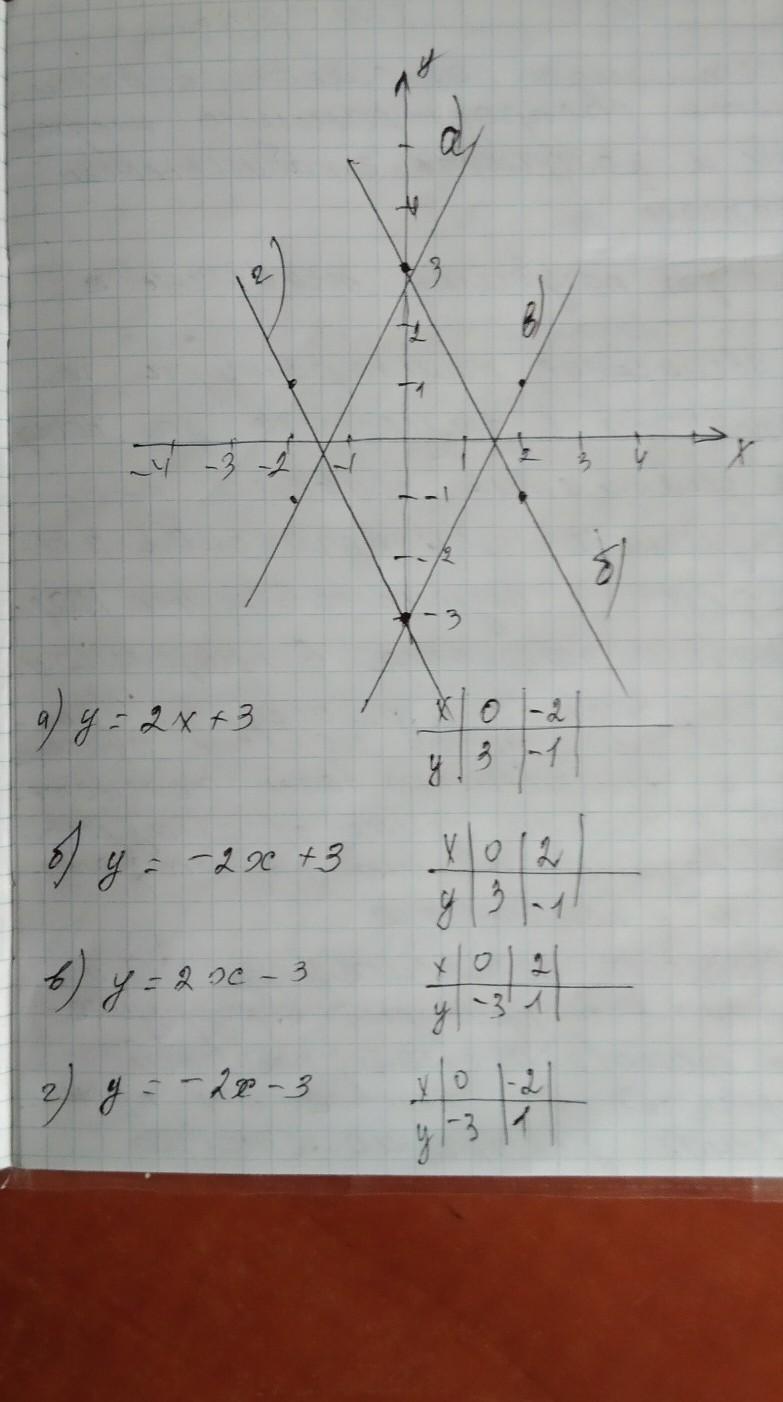 y
а)
4
г)
3
в)
2
1
-4 -3 -2 -1 1 2 3 4 x
-1
-2
б)
-3
а) y = 2x + 3
x 0 -2
y 3 -1
б) y = -2x + 3
x 0 2
y 3 -1
в) y = 2x - 3
x 0 2
y -3 1
г) y = -2x - 3
x 0 -2
y -3 1